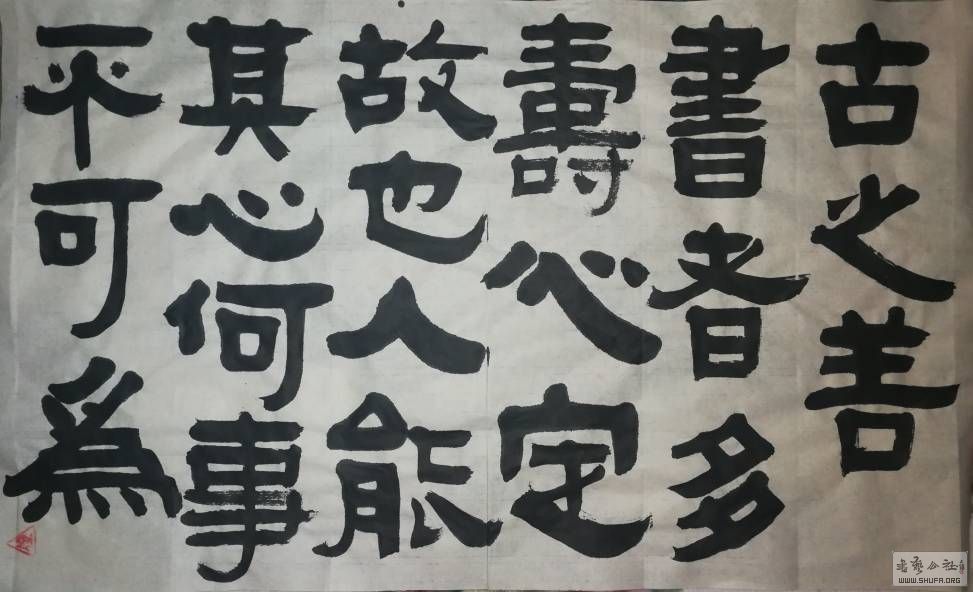 古之善
書者多
壽心定
故也人能
其心何事
平可為
书艺公社
WWW.SHUFA.ORG